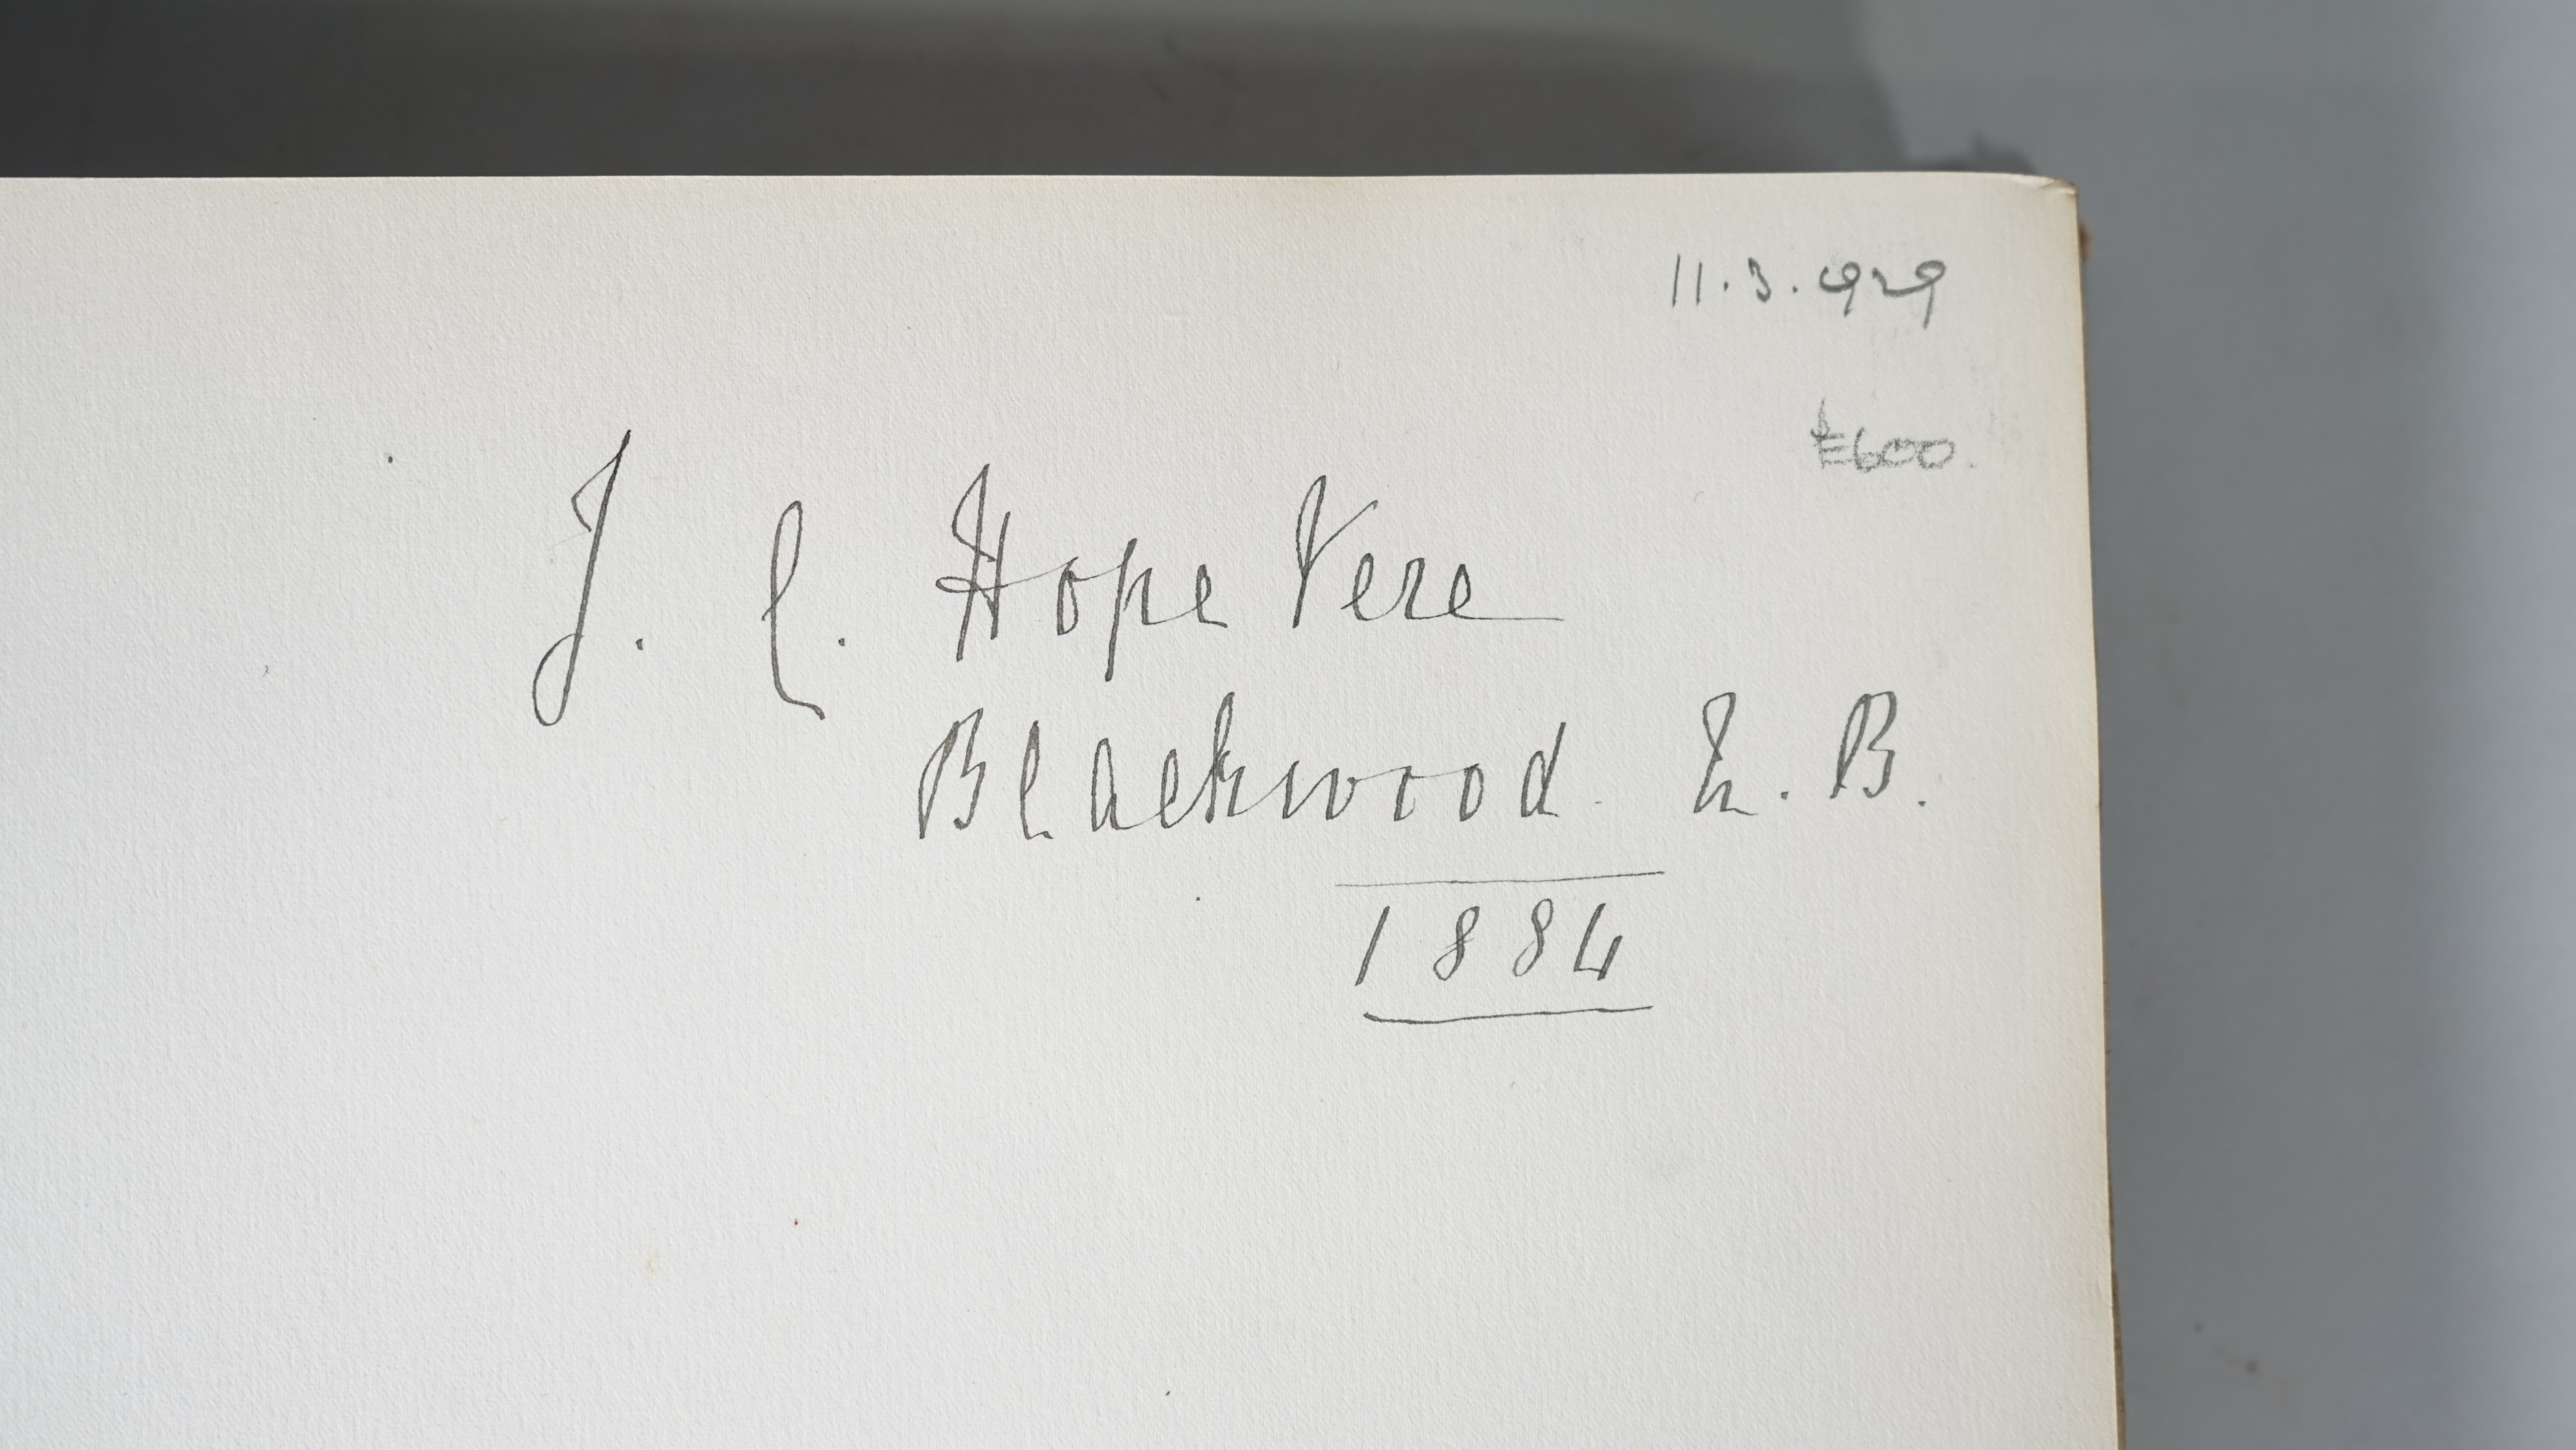 11.3.929
£600.
J. C. Hope Vere
Blackwood. N. B.
1884